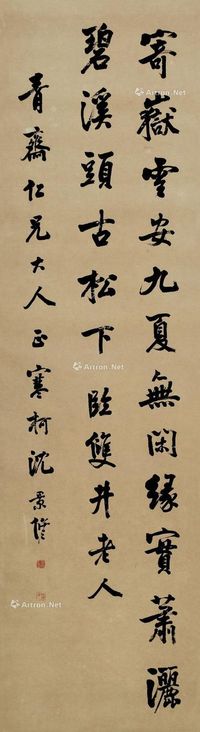 寄嶽雲安九夏無閑緣實蕭灑
碧溪頭古松下臨雙井老人
青齋仁兄大人正 寒柯沈景修
Artron.Net
Artron.Net
Artron.Net